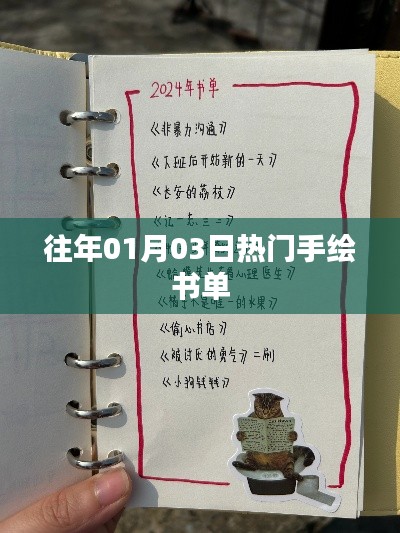 2024年书单
《非暴力沟通》
《下班后开始新的一天》
《长安的荔枝》
往年01月03日热门手绘
书单
心理医生》
是唯一的水果》
《偷心书店》
《被讨厌的勇气》二刷
《小狗钱钱》